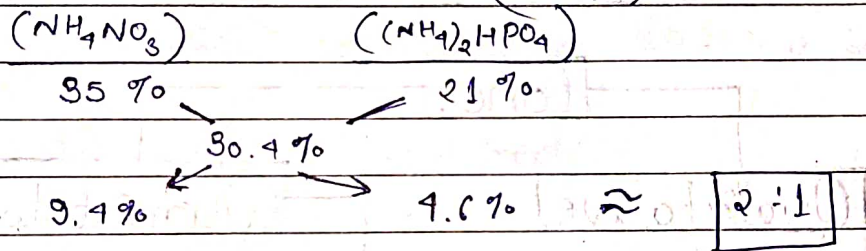 (NH₄NO₃) ((NH₄)₂HPO₄)
35 % 21 %.
30.4 %
9.4 % 4.6 % ≈ 2 ÷ 1